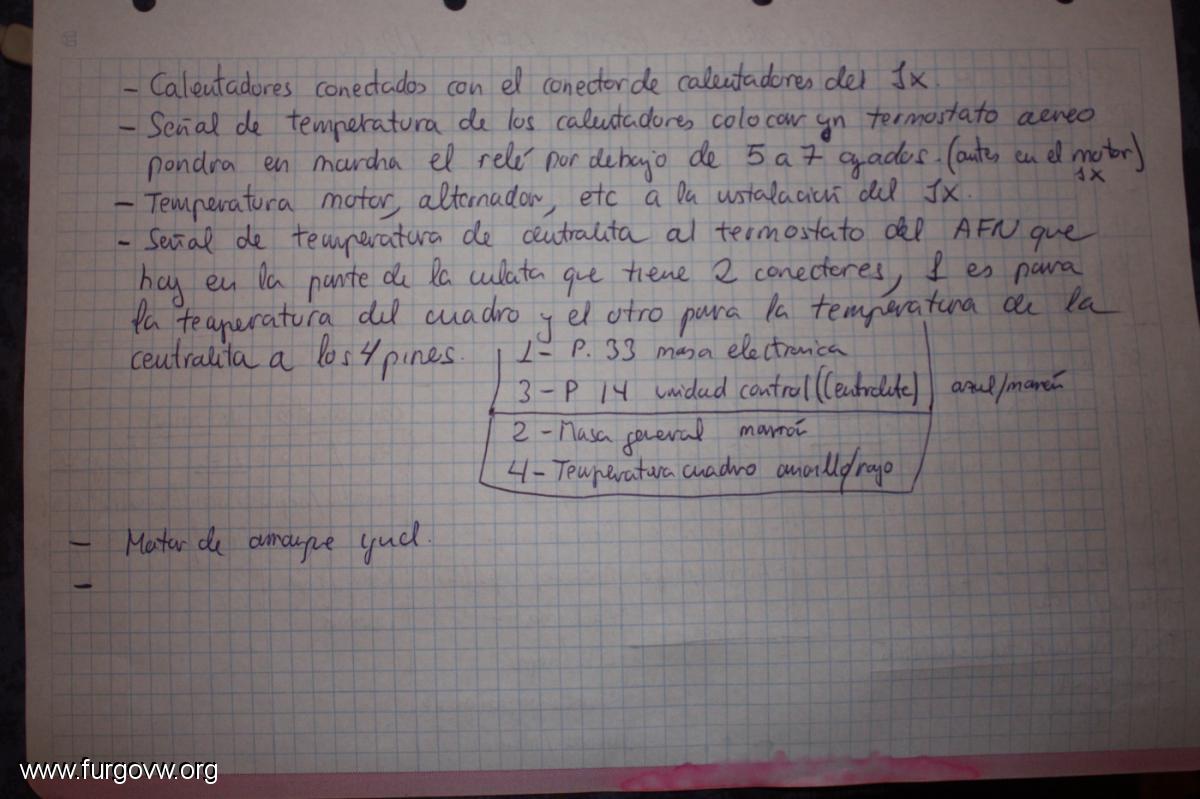 - Calentadores conectados con el conector de calentadores del 1x.
- Señal de temperatura de los calentadores colocar un termostato aereo
pondra en marcha el relé por debajo de 5 a 7 grados. (antes en el motor)
1x
- Temperatura motor, alternador, etc a la instalación del 1x.
- Señal de temperatura de centralita al termostato del AFN que
hay en la parte de la culata que tiene 2 conectores, 1 es para
la temperatura del cuadro y el otro para la temperatura de la
centralita a los 4 pines.
1- P. 33 masa electronica
3- P 14 unidad control ((centralita) azul/marrón
2 - Masa general marrón
4- Temperatura cuadro amarillo/rojo
- Motor de arranque igual.
-
www.furgovw.org